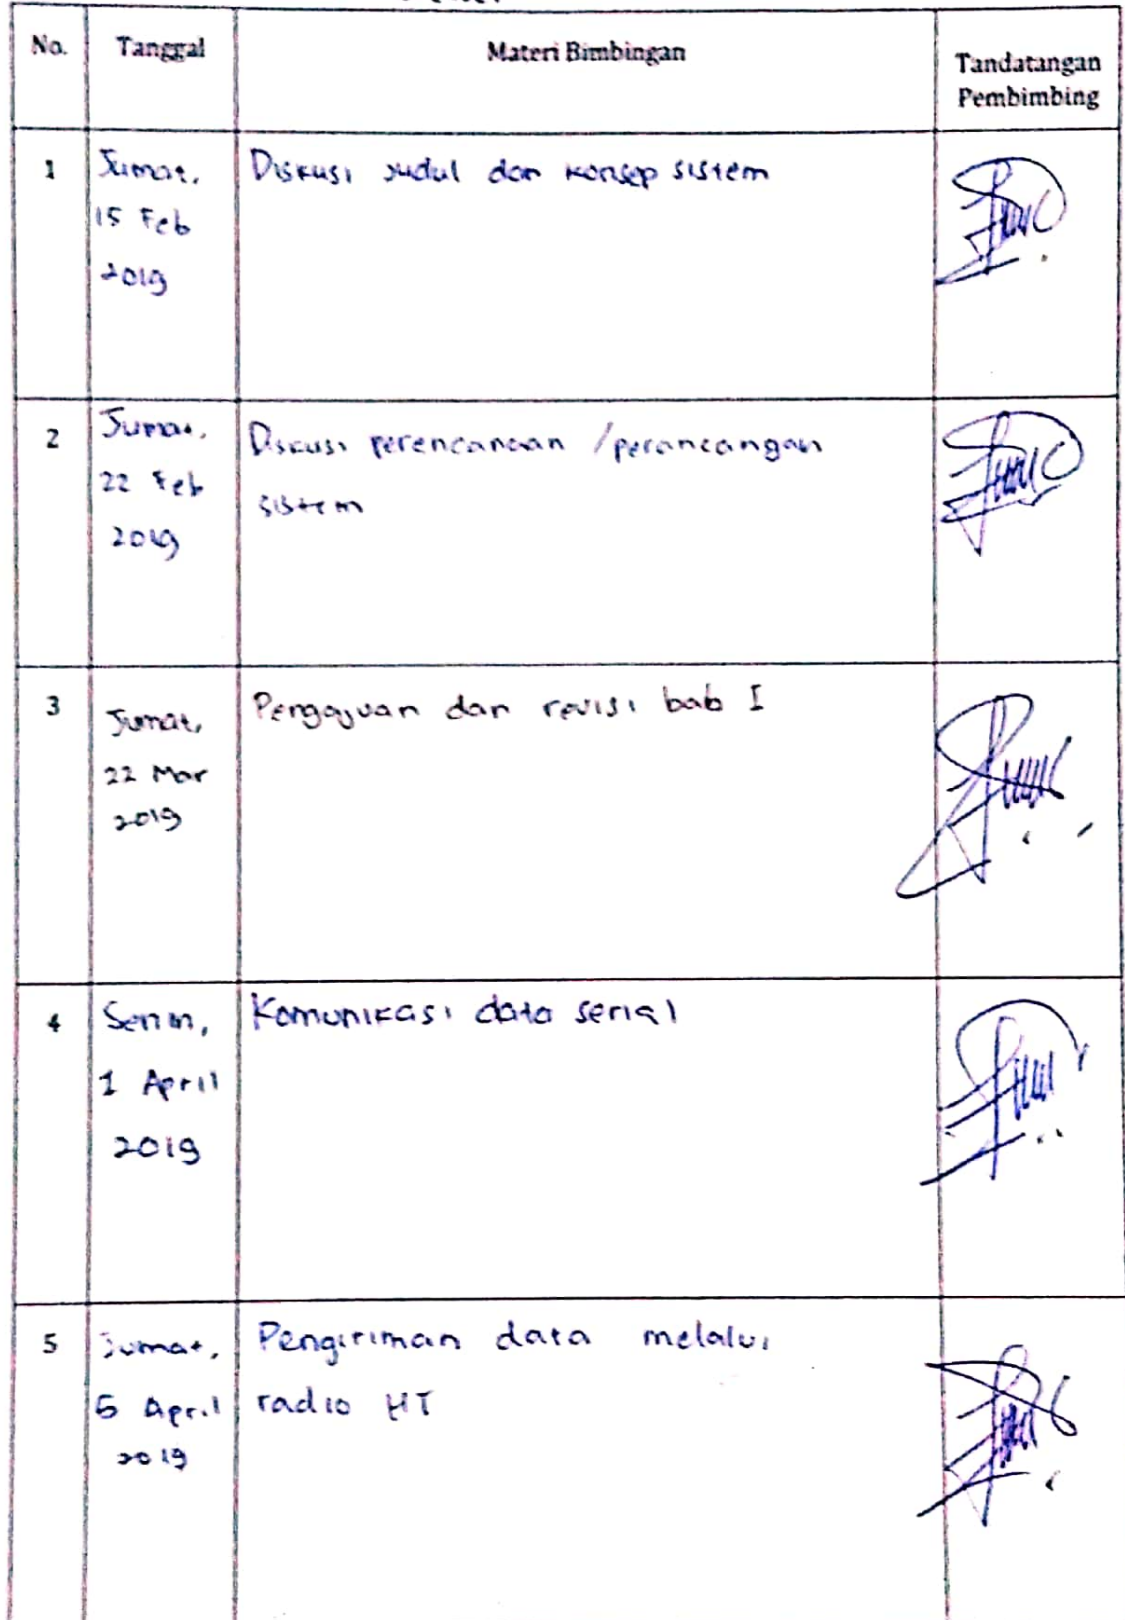 No.
Tanggal
Materi Bimbingan
Tandatangan
Pembimbing
1
Jumat,
15 Feb
2019
Diskusi judul dan konsep sistem
2
Jumat,
22 Feb
2019
Diskusi perencanaan / perancangan
sistem
3
Jumat,
22 Mar
2019
Pengajuan dan revisi bab I
4
Senin,
1 April
2019
Komunikasi data serial
5
Jumat,
5 April
2019
Pengiriman data melalui
radio HT